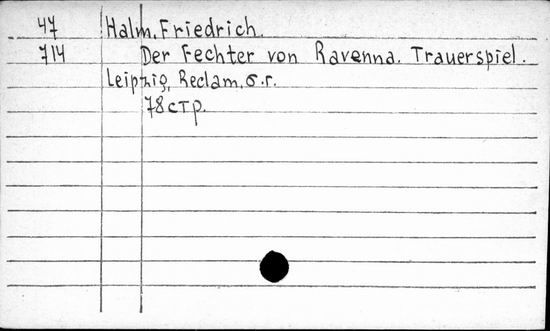 47 Halm, Friedrich.
714 Der Fechter von Ravenna. Trauerspiel.
Leipzig, Reclam, б.г.
78 стр.